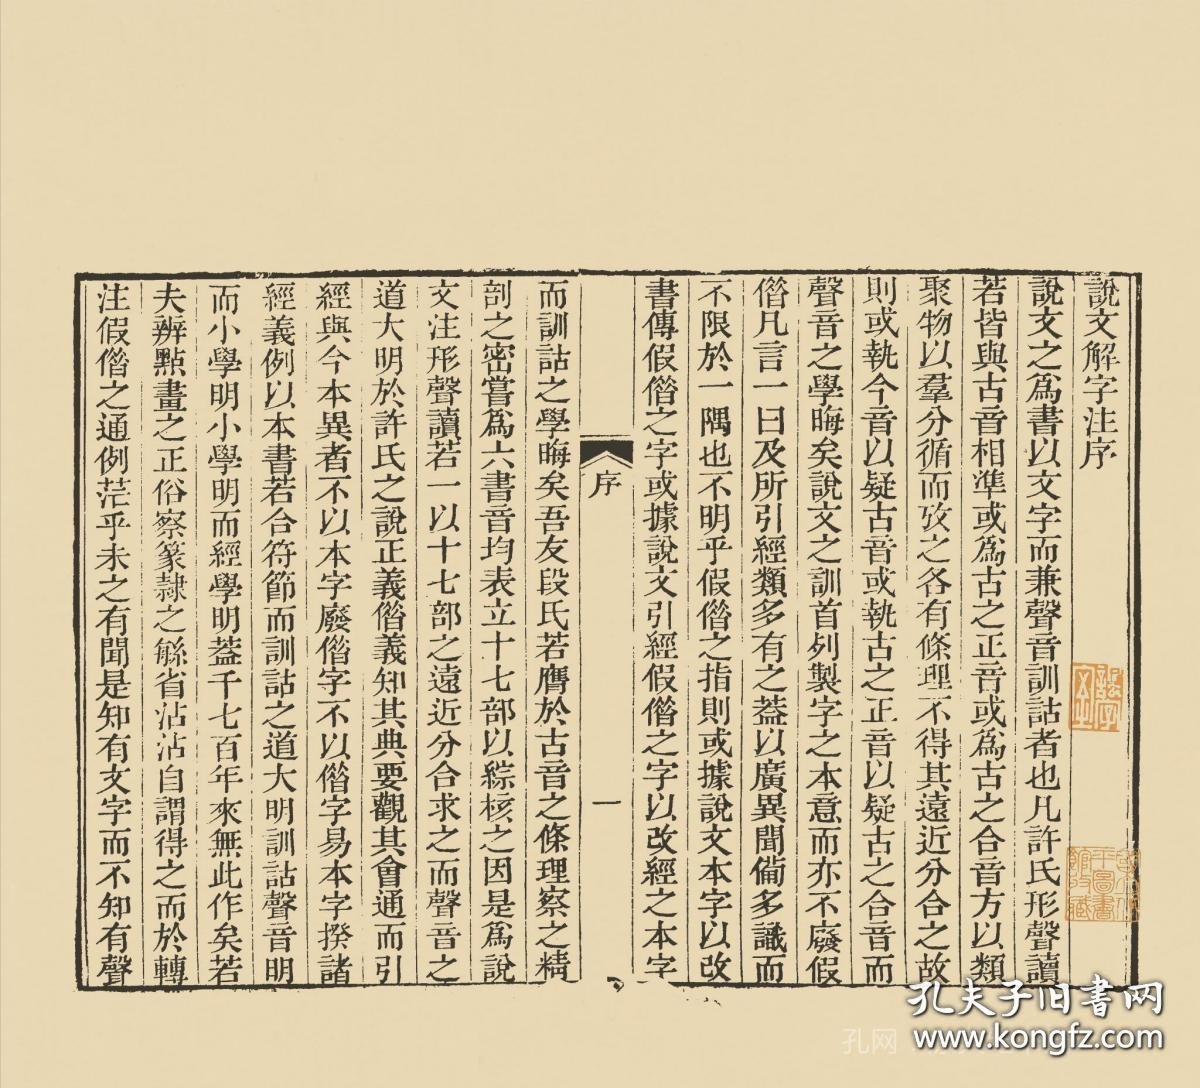 說文解字注序
說文之爲書以文字而兼聲音訓詁者也凡許氏形聲讀
若皆與古音相準或爲古之正音或爲古之合音方以類
聚物以羣分循而攷之各有條理不得其遠近分合之故
則或執今音以疑古音或執古之正音以疑古之合音而
聲音之學晦矣說文之訓首列製字之本意而亦不廢假
僭凡言一曰及所引經類多有之葢以廣異聞僃多識而
不限於一隅也不明乎假僭之指則或據說文本字以改
書傳假僭之字或據說文引經假僭之字以改經之本字
序
一
而訓詁之學晦矣吾友段氏若膺於古音之條理察之精
剖之密嘗爲六書音均表立十七部以綜核之因是爲說
文注形聲讀若一以十七部之遠近分合求之而聲音之
道大明於許氏之說正義僭義知其典要觀其會通而引
經與今本異者不以本字廢僭字不以僭字易本字揆諸
經義例以本書若合符節而訓詁之道大明訓詁聲音明
而小學明小學明而經學明葢千七百年來無此作矣若
夫辨點畫之正俗察篆隸之緐省沾沾自謂得之而於轉
注假僭之通例茫乎未之有聞是知有文字而不知有聲
孔夫子旧书网
www.kongfz.com
孔网